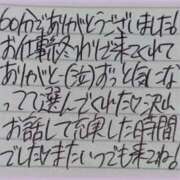 60分でありがとうございました!
お仕事終わりで来てくれて
ありがと(泣)ずっと気にな
ってて選んでくれたり沢山
お話して充実した時間
でした♪またいつでも来てね!